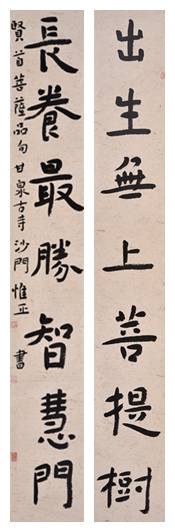 出生無上菩提樹
長養最勝智慧門
賢首菩薩品句甘泉古寺沙門惟正書